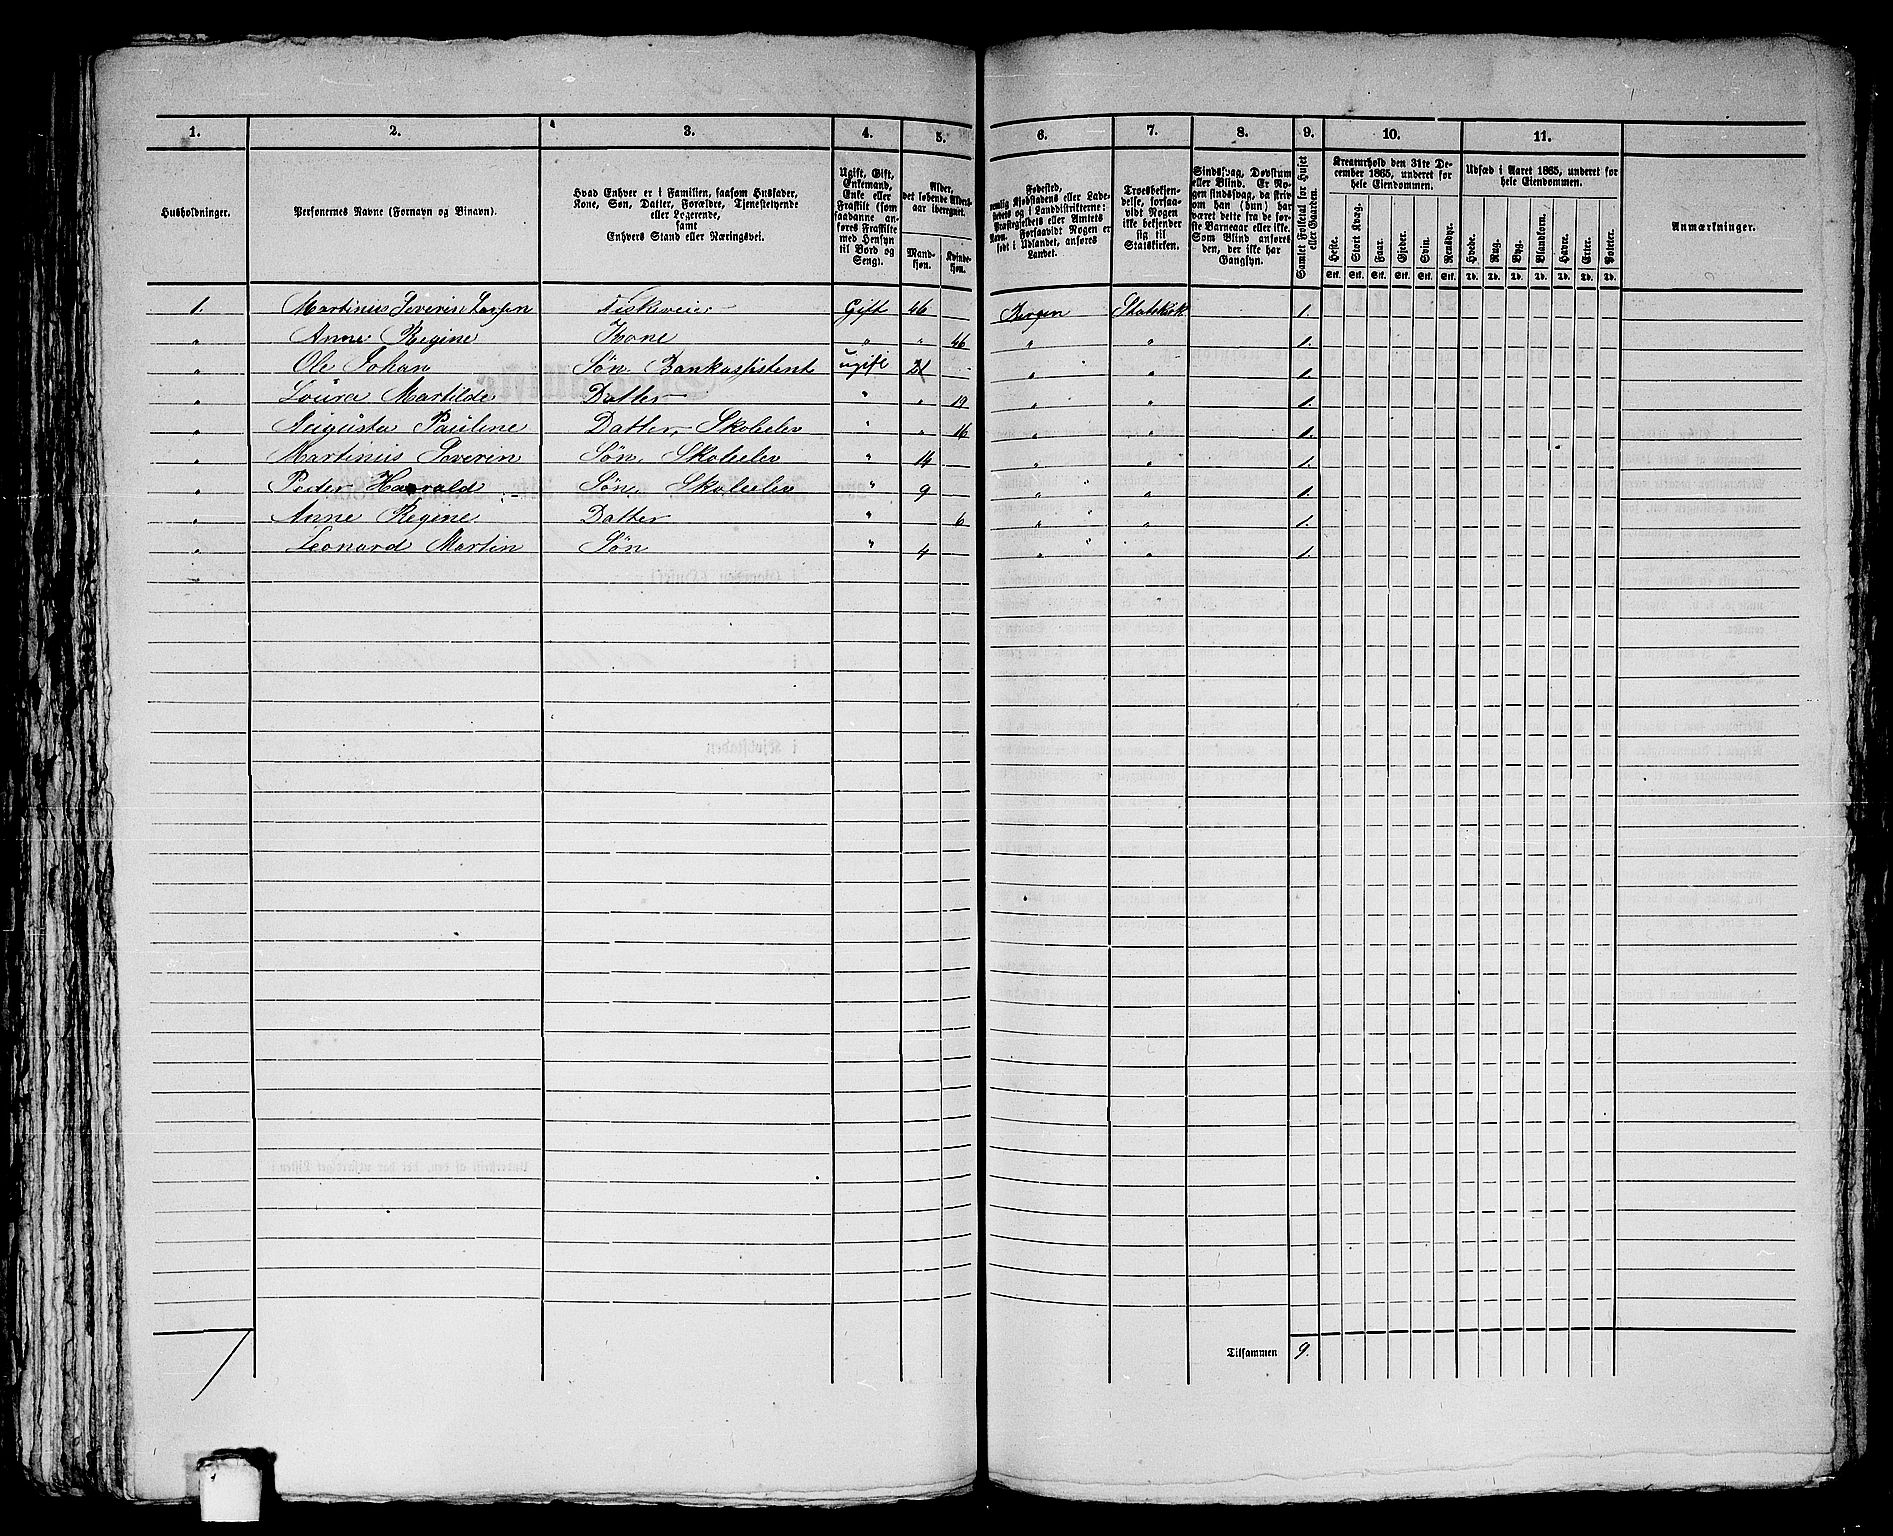 1. 2. 3. 4. 5. 6. 7. 8. 9. 10. 11.
Husholdninger.
Personernes Navne (Fornavn og Binavn).
Hvad Enhver er i Familien, saasom Husfader,
Kone, Søn, Datter, Forældre, Tjenestetyende
eller Logerende,
samt
Enhvers Stand eller Næringsvei.
Ugift, Gift,
Enkemand,
Enke eller
Fraskilt (som
saadanne an-
føres Fraskilte
med Hensyn
til Bord og
Seng).
Alder,
det løbende Alders-
aar iberegnet.
Mand-
kjøn.
Kvinde-
kjøn.
Fødested,
nemlig Kjøbstadens eller Lade-
stedets og i Landdistrikterne:
Præstegjeldets eller Amtets
Navn. Forsaavidt Nogen er
født i Udlandet, anføres
Landet.
Troesbekjen-
delse, forsaa-
vidt Nogen
ikke bekjender
sig til
Statskirken.
Sindssvag, Døvstum
eller Blind. Er No-
gen sindssvag, da skriv
om han (hun) har
været dette fra de før-
ste Barneaar eller ikke.
Som Blind anføres
den, der ikke har
Gangsyn.
Samlet Folketal for Huset
eller Gaarden.
Kreaturhold den 31te De-
cember 1865, underet for
hele Eiendommen.
Heste. Stort Kvæg. Faar. Gjeder. Svin. Rensdyr.
Stk. Stk. Stk. Stk. Stk. Stk.
Udsæd i Aaret 1865, underet for
hele Eiendommen.
Hvede. Rug. Byg. Blandkorn. Havre. Erter. Poteter.
Td. Td. Td. Td. Td. Td. Td.
Anmærkninger.
1. Martinus Severin Larsen Fiskveier Gift 46 Bergen Statskirk 1.
„ Anne Regine Kone „ „ 46 „ „ 1.
„ Ole Johan Søn Bankassistent ugift 21 „ „ 1.
„ Loura Martilde Datter „ „ 19 „ „ 1.
„ Augusta Pauline Datter, Skoleelev „ „ 16 „ „ 1.
„ Martinus Severin Søn, Skoleelev „ 14 „ „ 1.
„ Peder Harald Søn, Skoleelev „ 9 „ „ 1.
„ Anne Regine Datter „ 6 „ „ 1.
„ Leonard Martin Søn „ 4 „ „ 1.
Tilsammen 9.